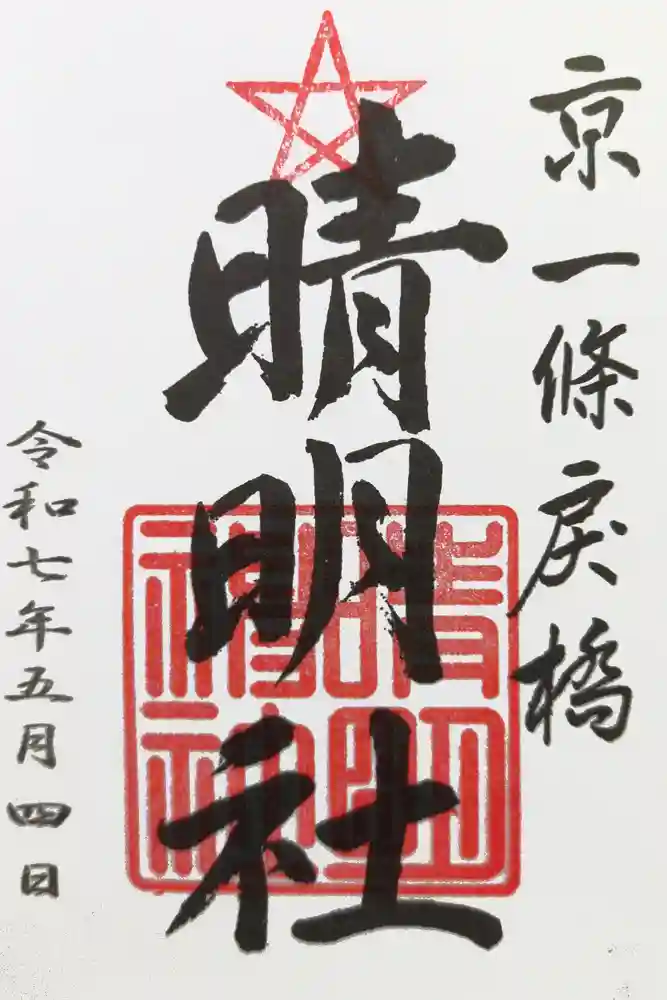 京一條戻橋
晴明社
令和七年五月四日